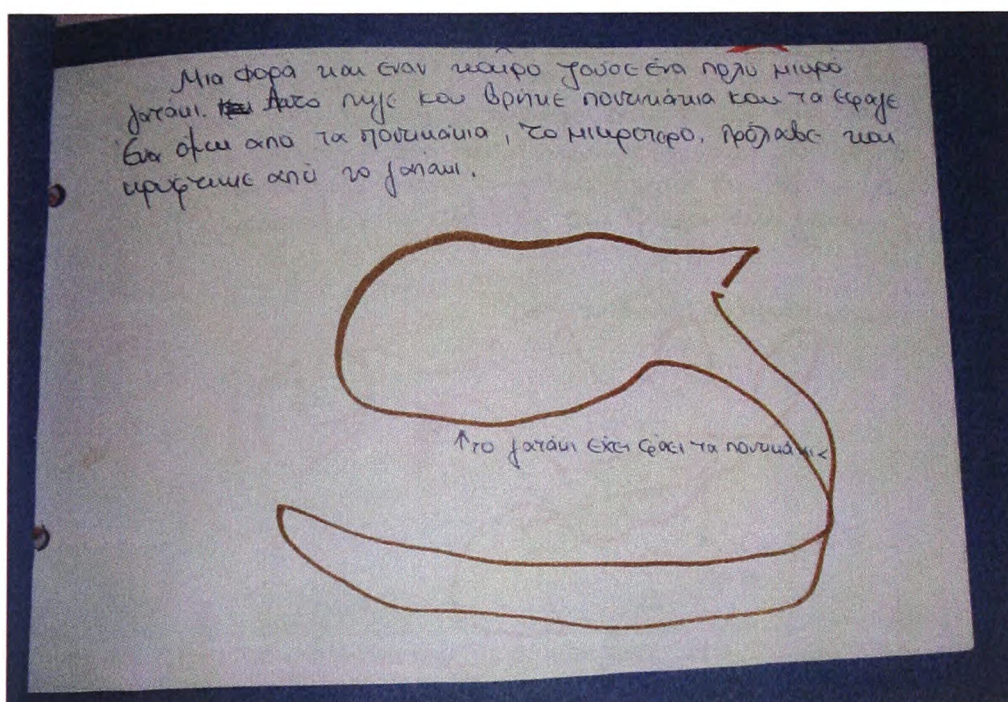 Μια φορα και εναν καιρο ζουσε ένα πολυ μικρό
γατάκι. Αυτο πηγε και βρηκε ποντικάκια και τα εφαγε
Ενα απο τα ποντικάκια, το μικροτερο. πρόλαβε και
κρύφτηκε από το γατάκι.
↑το γατάκι έχει φάει τα ποντικάκια